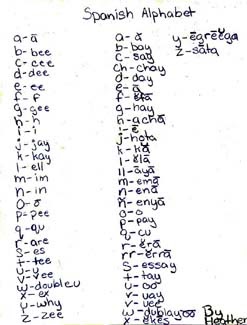 Spanish Alphabet
a-ā
b-bee
c-cee
d-dee
e-ee
f-f
g-gee
h-h
i-i
j-jay
k-kay
l-ell
m-im
n-in
o-ō
p-pee
q-qu
r-are
s-es
t-tee
u-u
v-vee
w-double.u
x-ex
y-why
z-zee
a-ā
b-bay
c-say
ch-chay
d-day
e-ā
f-efā
g-hay
h-achā
i-ē
j-hota
k-kā
l-ālā
ll-āyā
m-emā
n-enā
ñ-enyā
o-o
p-pay
q-cu
r-ērā
rr-ērrā
s-essay
t-tay
u-oo
v-vay
v-vee
w-dublayoo
x-ekes
y-ēgrēēga
z-sāta
By
Heather